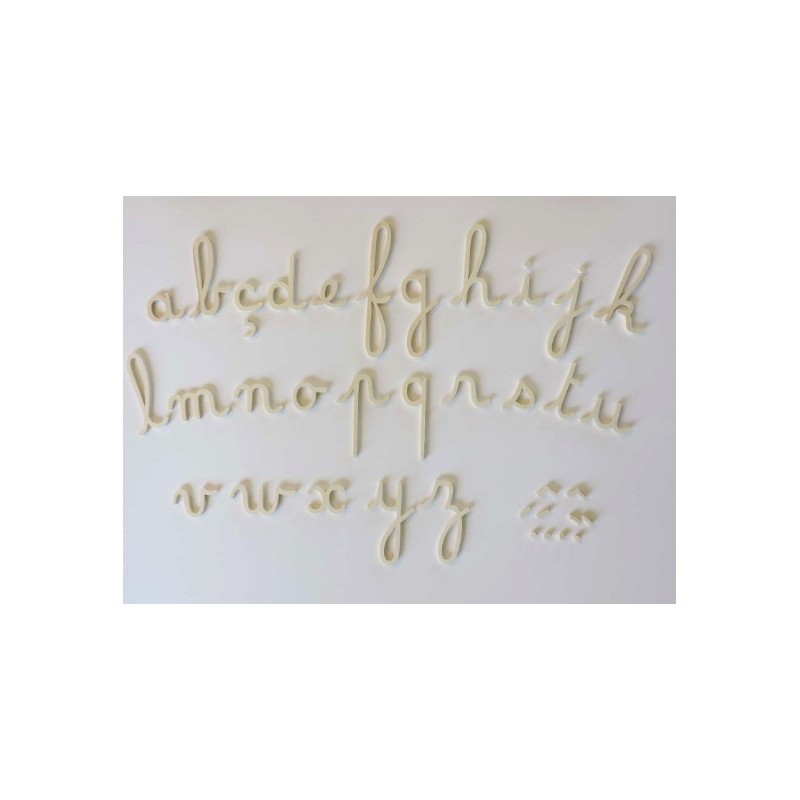 abçdefghijk
lmnopqrstu
vwxyz